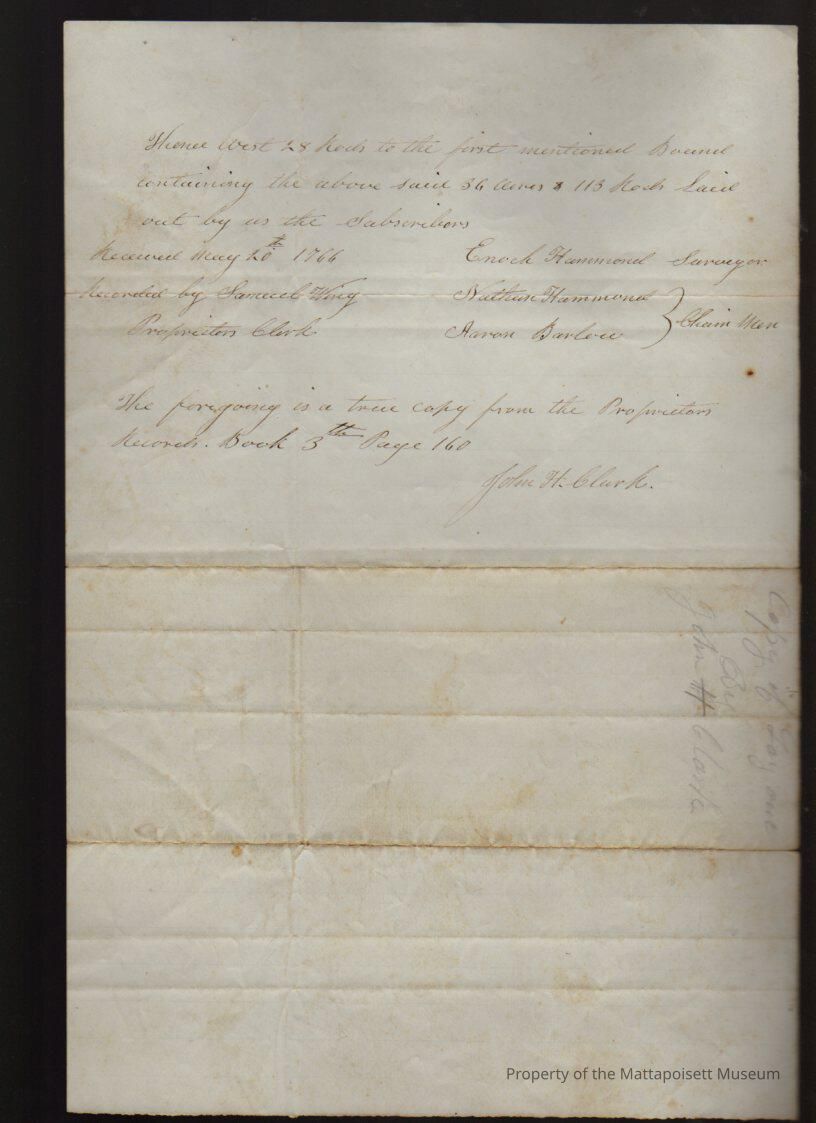 Thence West 28 Rods to the first mentioned Bound
containing the above said 36 Acres & 113 Rods Laid
out by us the Subscribers
Received May 20th 1766 Enoch Hammond Surveyor
Recorded by Samuel Wing Nathan Hammond
Proprietors Clerk Aaron Barlow } Chain Men
The foregoing is a true copy from the Proprietors
Records. Book 3th Page 160
John H. Clark.
Copy of Lay out
for
John H Clark
Property of the Mattapoisett Museum